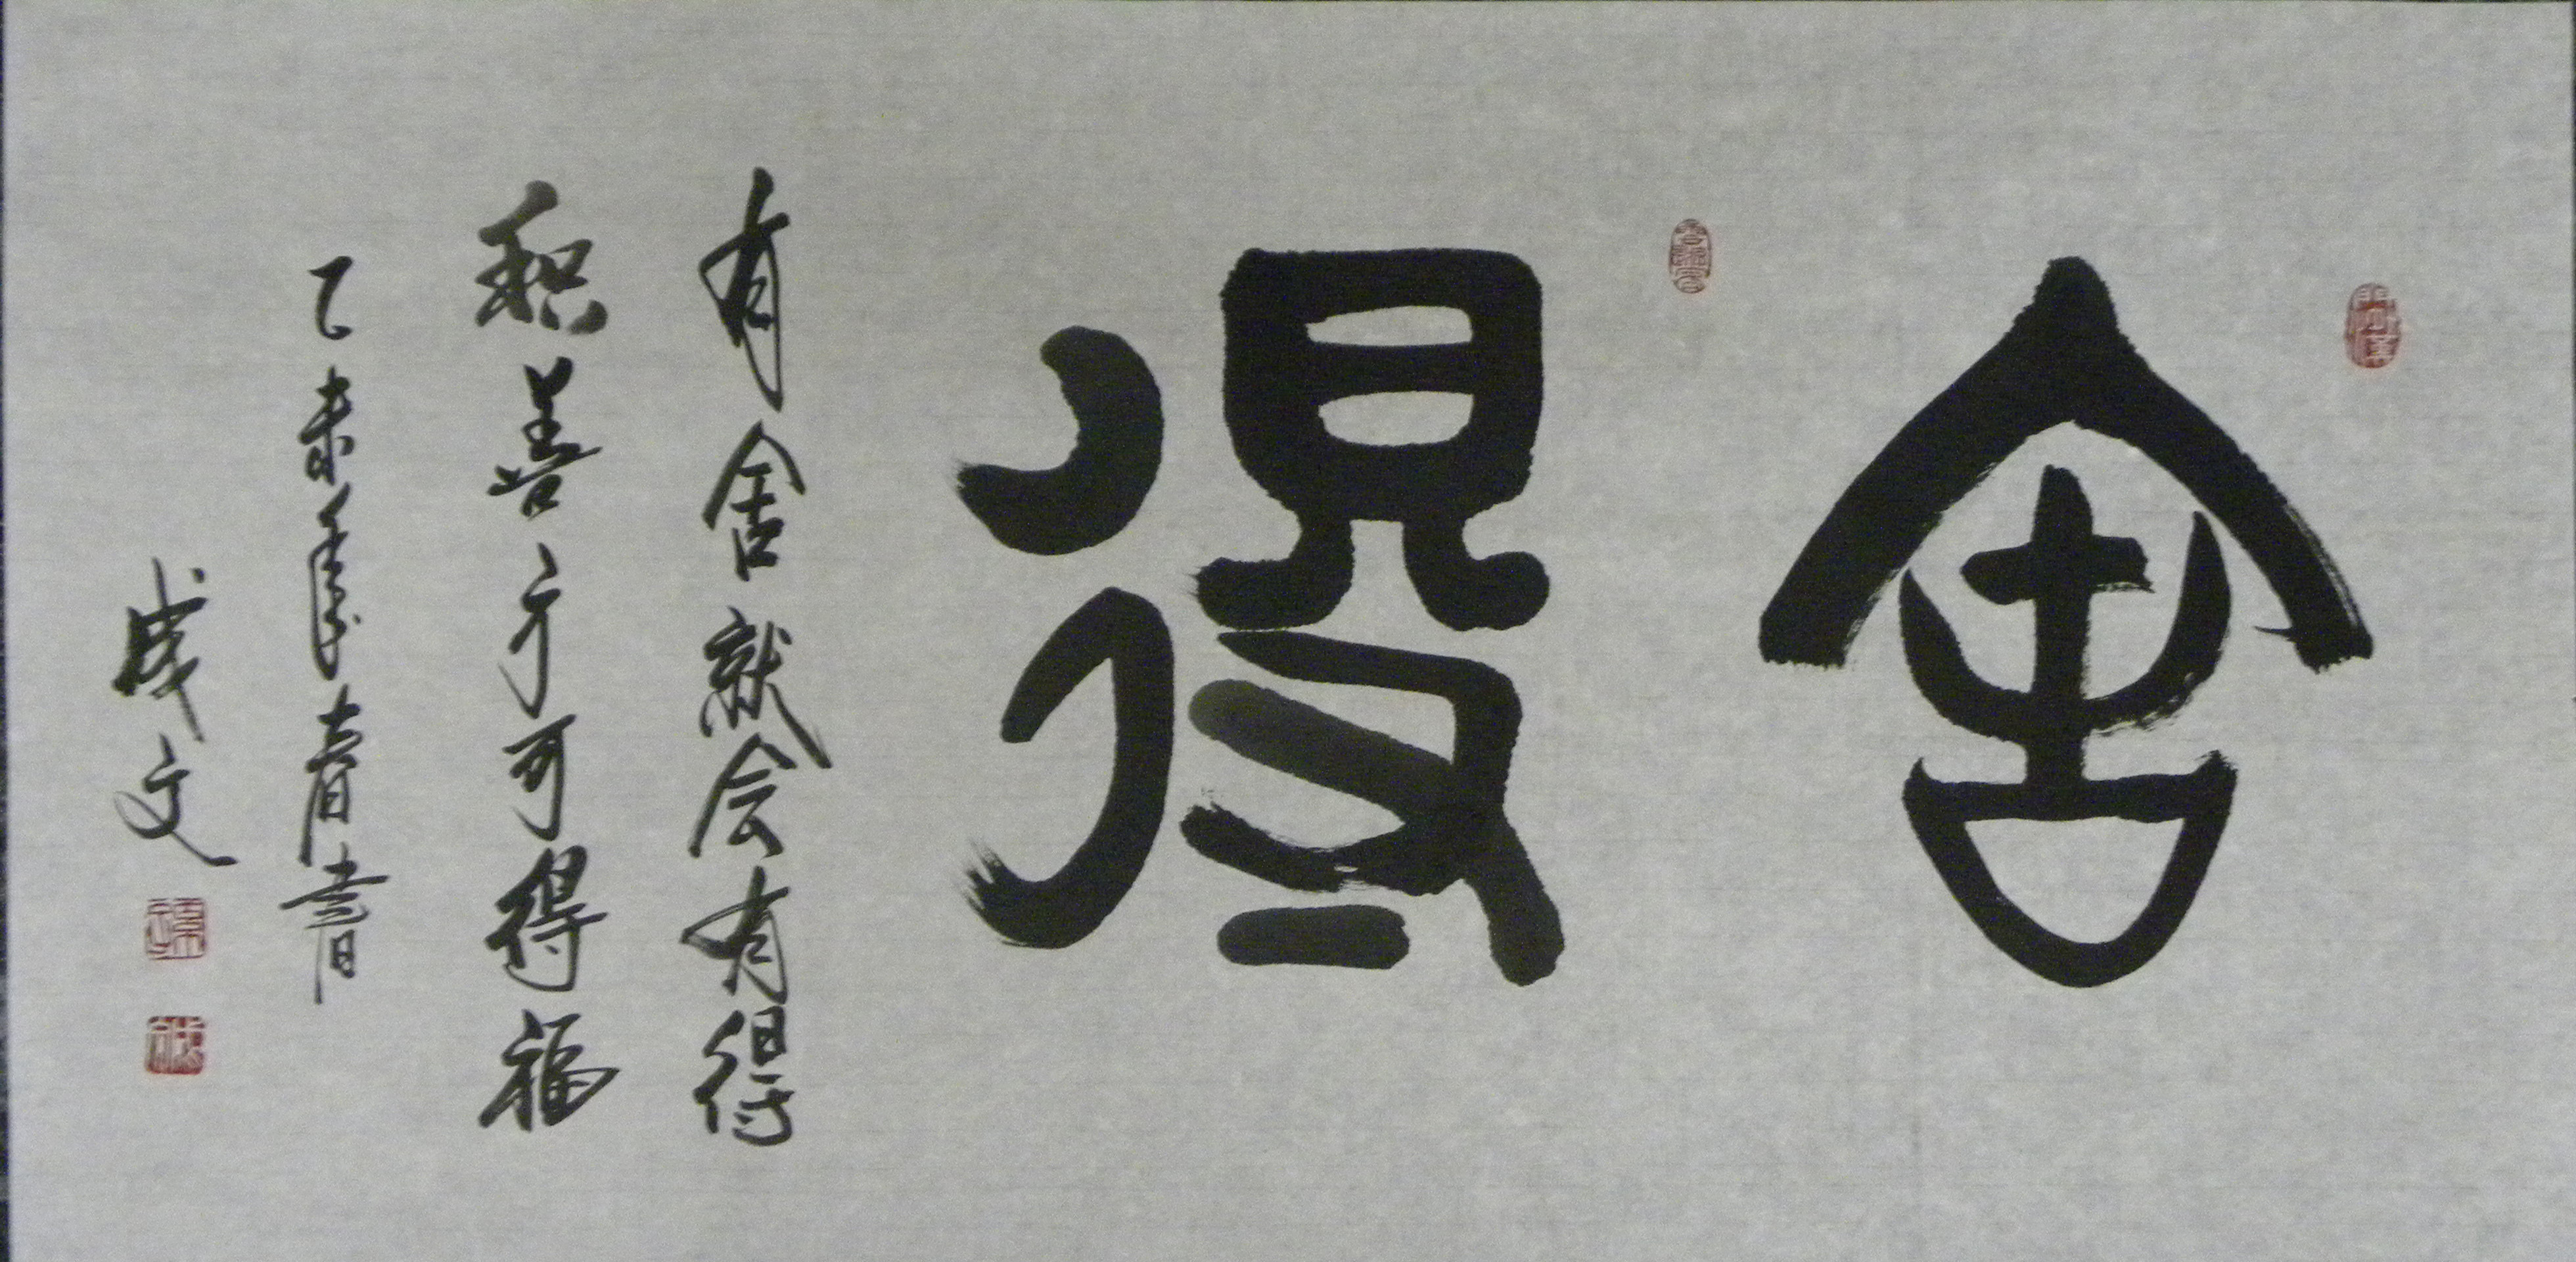 舍得
有舍就会有得
积善方可得福
乙未年春书
成文